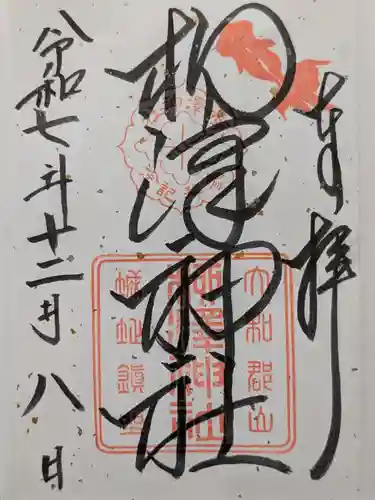 奉拝
柳澤神社
令和七年十二月八日
大和郡山
柳澤神社
城址鎮座